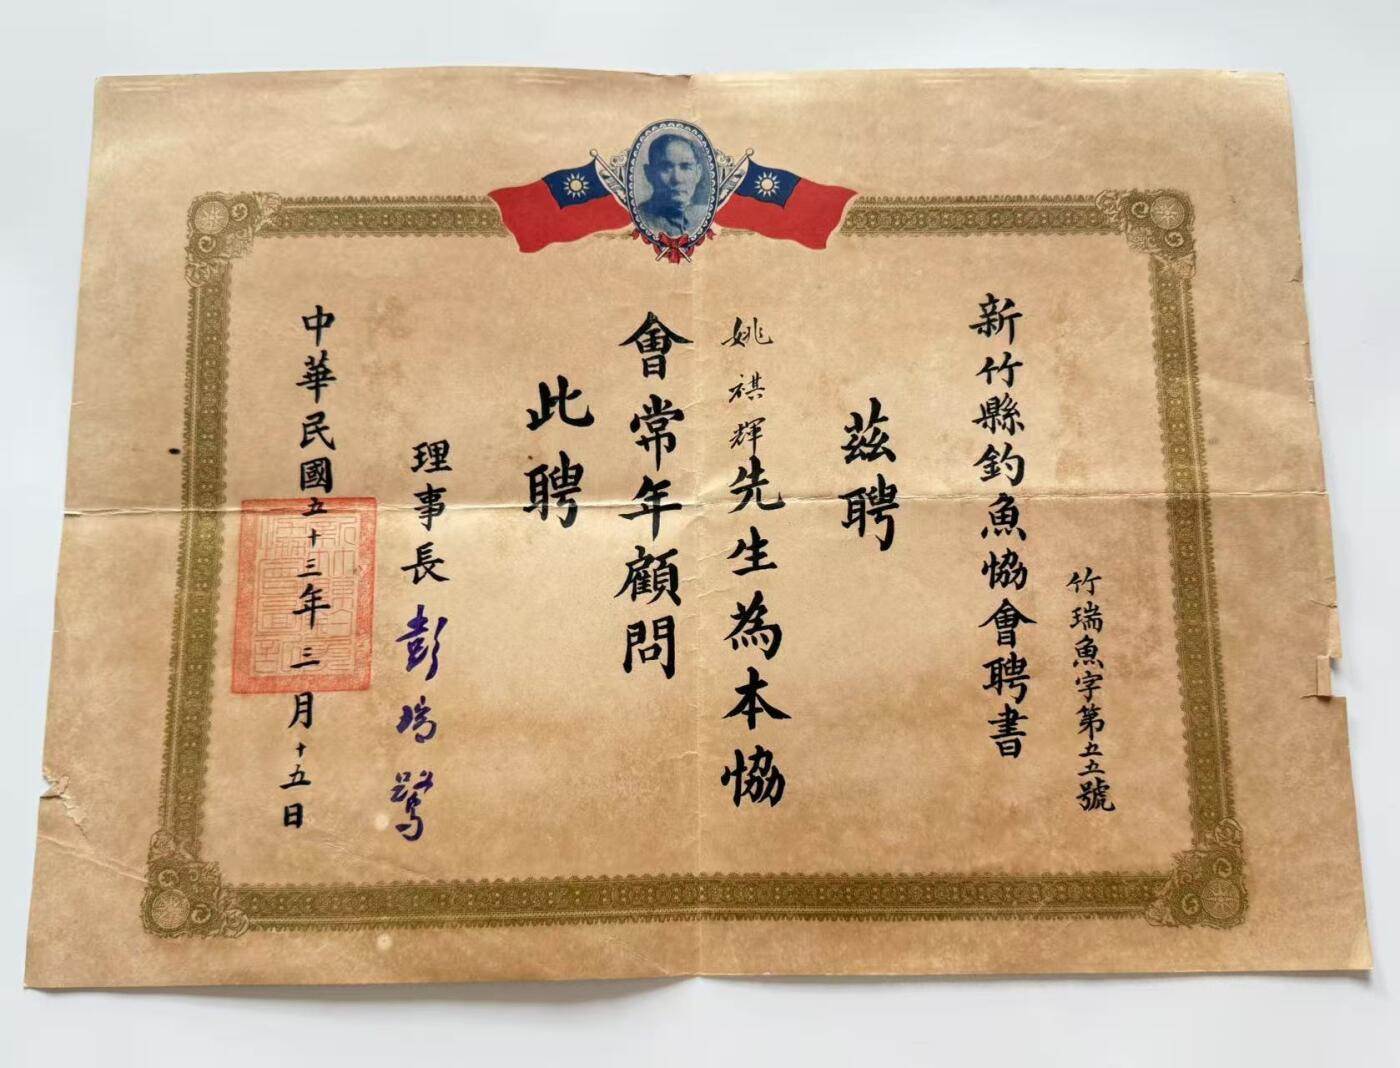 新竹縣釣魚協會聘書
竹瑞魚字第五五號
茲聘
姚祺輝先生為本協
會常年顧問
此聘
理事長 彭瑞鷺
中華民國五十三年三月十五日